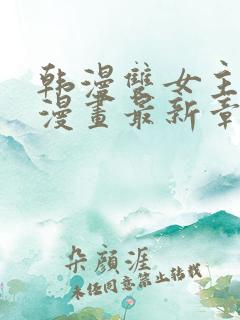 韩漫雙女主
漫畫最新章
朵顏涯
未经同意禁止转载